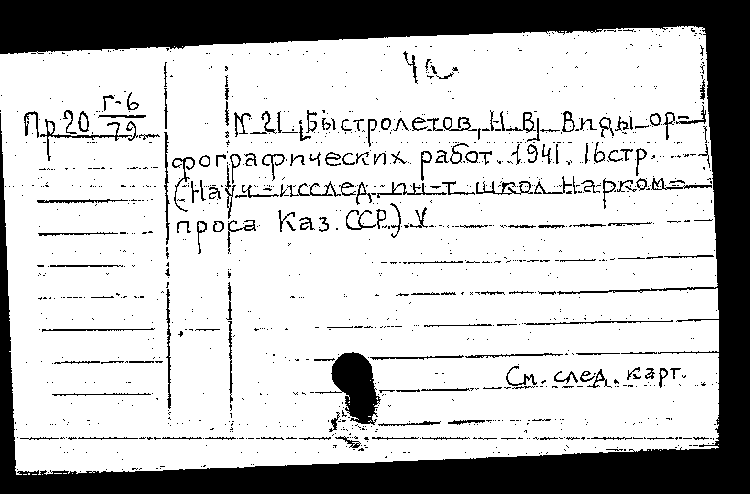 4а.
Пр20 Г-6/79
№ 21. [Быстролетов, Н.В] Виды ор-
фографических работ. 1941. 16стр.
(Науч.-исслед. ин-т школ Нарком-
проса Каз. ССР). V
См. след. карт.